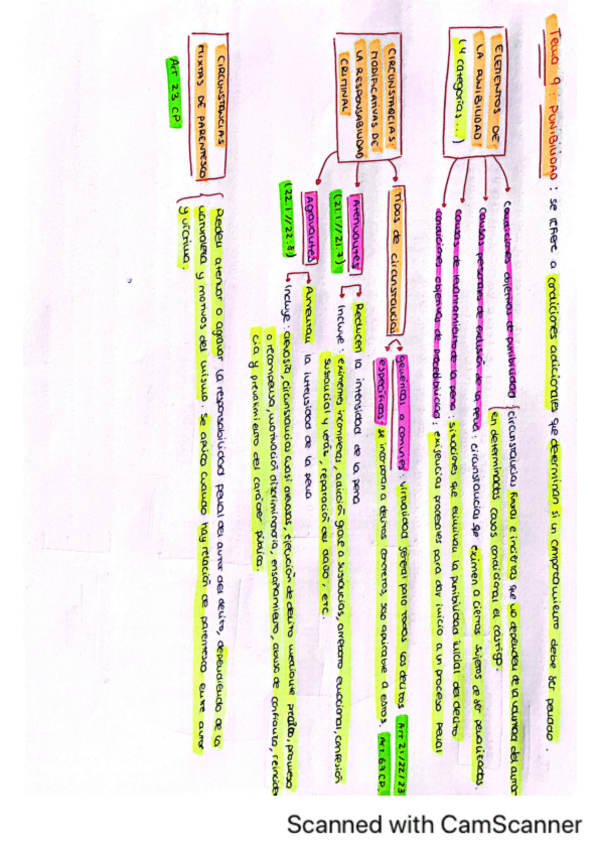 Tema 9: PUNIBILIDAD: se refiere a condiciones adicionales que determinan si un comportamiento debe ser penado.
ELEMENTOS DE
LA PUNIBILIDAD
(4 categorías...)
Condiciones objetivas de punibilidad
circunstancias futuras e inciertas que no dependen de la voluntad del autor
en determinados casos condicional el castigo.
causas personales de exclusión de la pena: circunstancias se eximen a ciertos sujetos de ser penalizados.
causas de levantamiento de la pena: situaciones que eliminan la punibilidad inicial del delito
condiciones objetivas de procedibilidad: exigencias procesales para dar inicio a un proceso penal
CIRCUNSTANCIAS
MODIFICATIVAS DE
LA RESPONSABILIDAD
CRIMINAL
Tipos de circunstancias
genéricas o comunes: virtualidad general para todos los delitos Art 21/22/23
específicas: se incorporan a delitos concretos, solo aplicable a estos. Art. 67 CP.
Atenuantes
(21.1//21.7)
Reducen la intensidad de la pena
Incluye: eximentes incompletas, adicción grave a sustancias, arrebato emocional, confesión
sustancial y veráz, reparación del daño, etc.
Agravantes
(22.1//22.8)
Aumentan la intensidad de la pena
Incluye: alevosía, circunstancias cuasi alevosas, ejecución de delito mediante precio, promesa
o recompensa, motivación discriminatoria, ensañamiento, abuso de confianza, reinciden
cia y prevalimiento del carácter público
CIRCUNSTANCIAS
MIXTAS DE PARENTESCO
Art 23 CP
Pueden atenuar o agravar la responsabilidad penal del autor del delito, dependiendo de la
naturaleza y motivos del mismo. Se aplica cuando hay relación de parentesco entre autor
y víctima.
Scanned with CamScanner